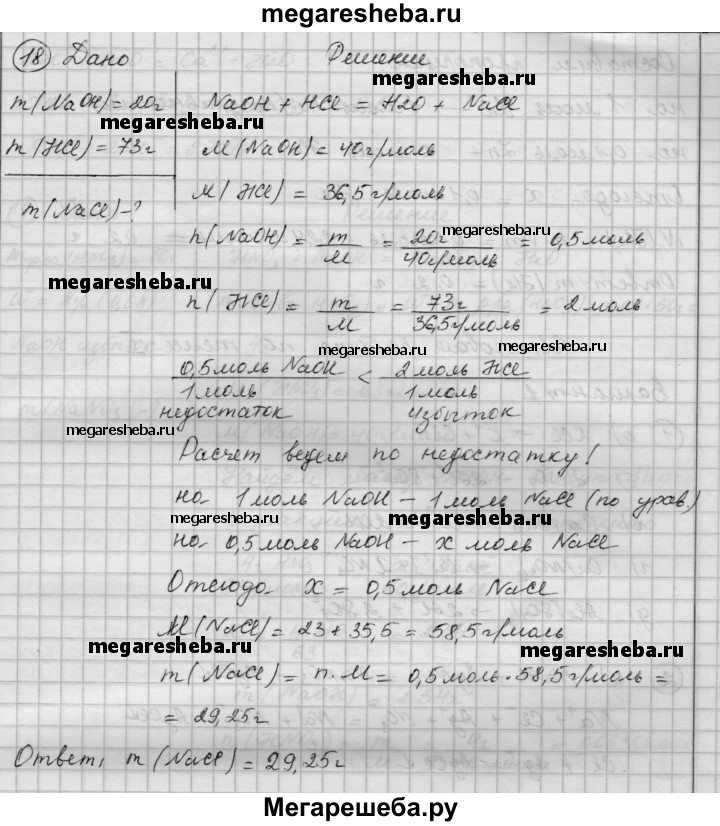 megaresheba.ru
18 Дано Решение
m(NaOH)=20г NaOH + HCl = H2O + NaCl
megaresheba.ru
m(HCl)=73г M(NaOH)=40г/моль
m(NaCl)-? M(HCl)=36,5г/моль
n(NaOH)= m/M = 20г/40г/моль = 0,5моль
megaresheba.ru
megaresheba.ru
n(HCl)= m/M = 73г/36,5г/моль = 2моль
megaresheba.ru
0,5моль NaOH/1моль < 2моль HCl/1моль
недостаток избыток
megaresheba.ru
Расчет ведем по недостатку!
на 1моль NaOH - 1моль NaCl (по урав.)
megaresheba.ru megaresheba.ru
на 0,5моль NaOH - x моль NaCl
Отсюда x = 0,5моль NaCl
M(NaCl)=23+35,5=58,5г/моль
megaresheba.ru megaresheba.ru
m(NaCl)= n·M= 0,5моль·58,5г/моль=
= 29,25г
Ответ: m(NaCl)=29,25г
Мегарешеба.ру